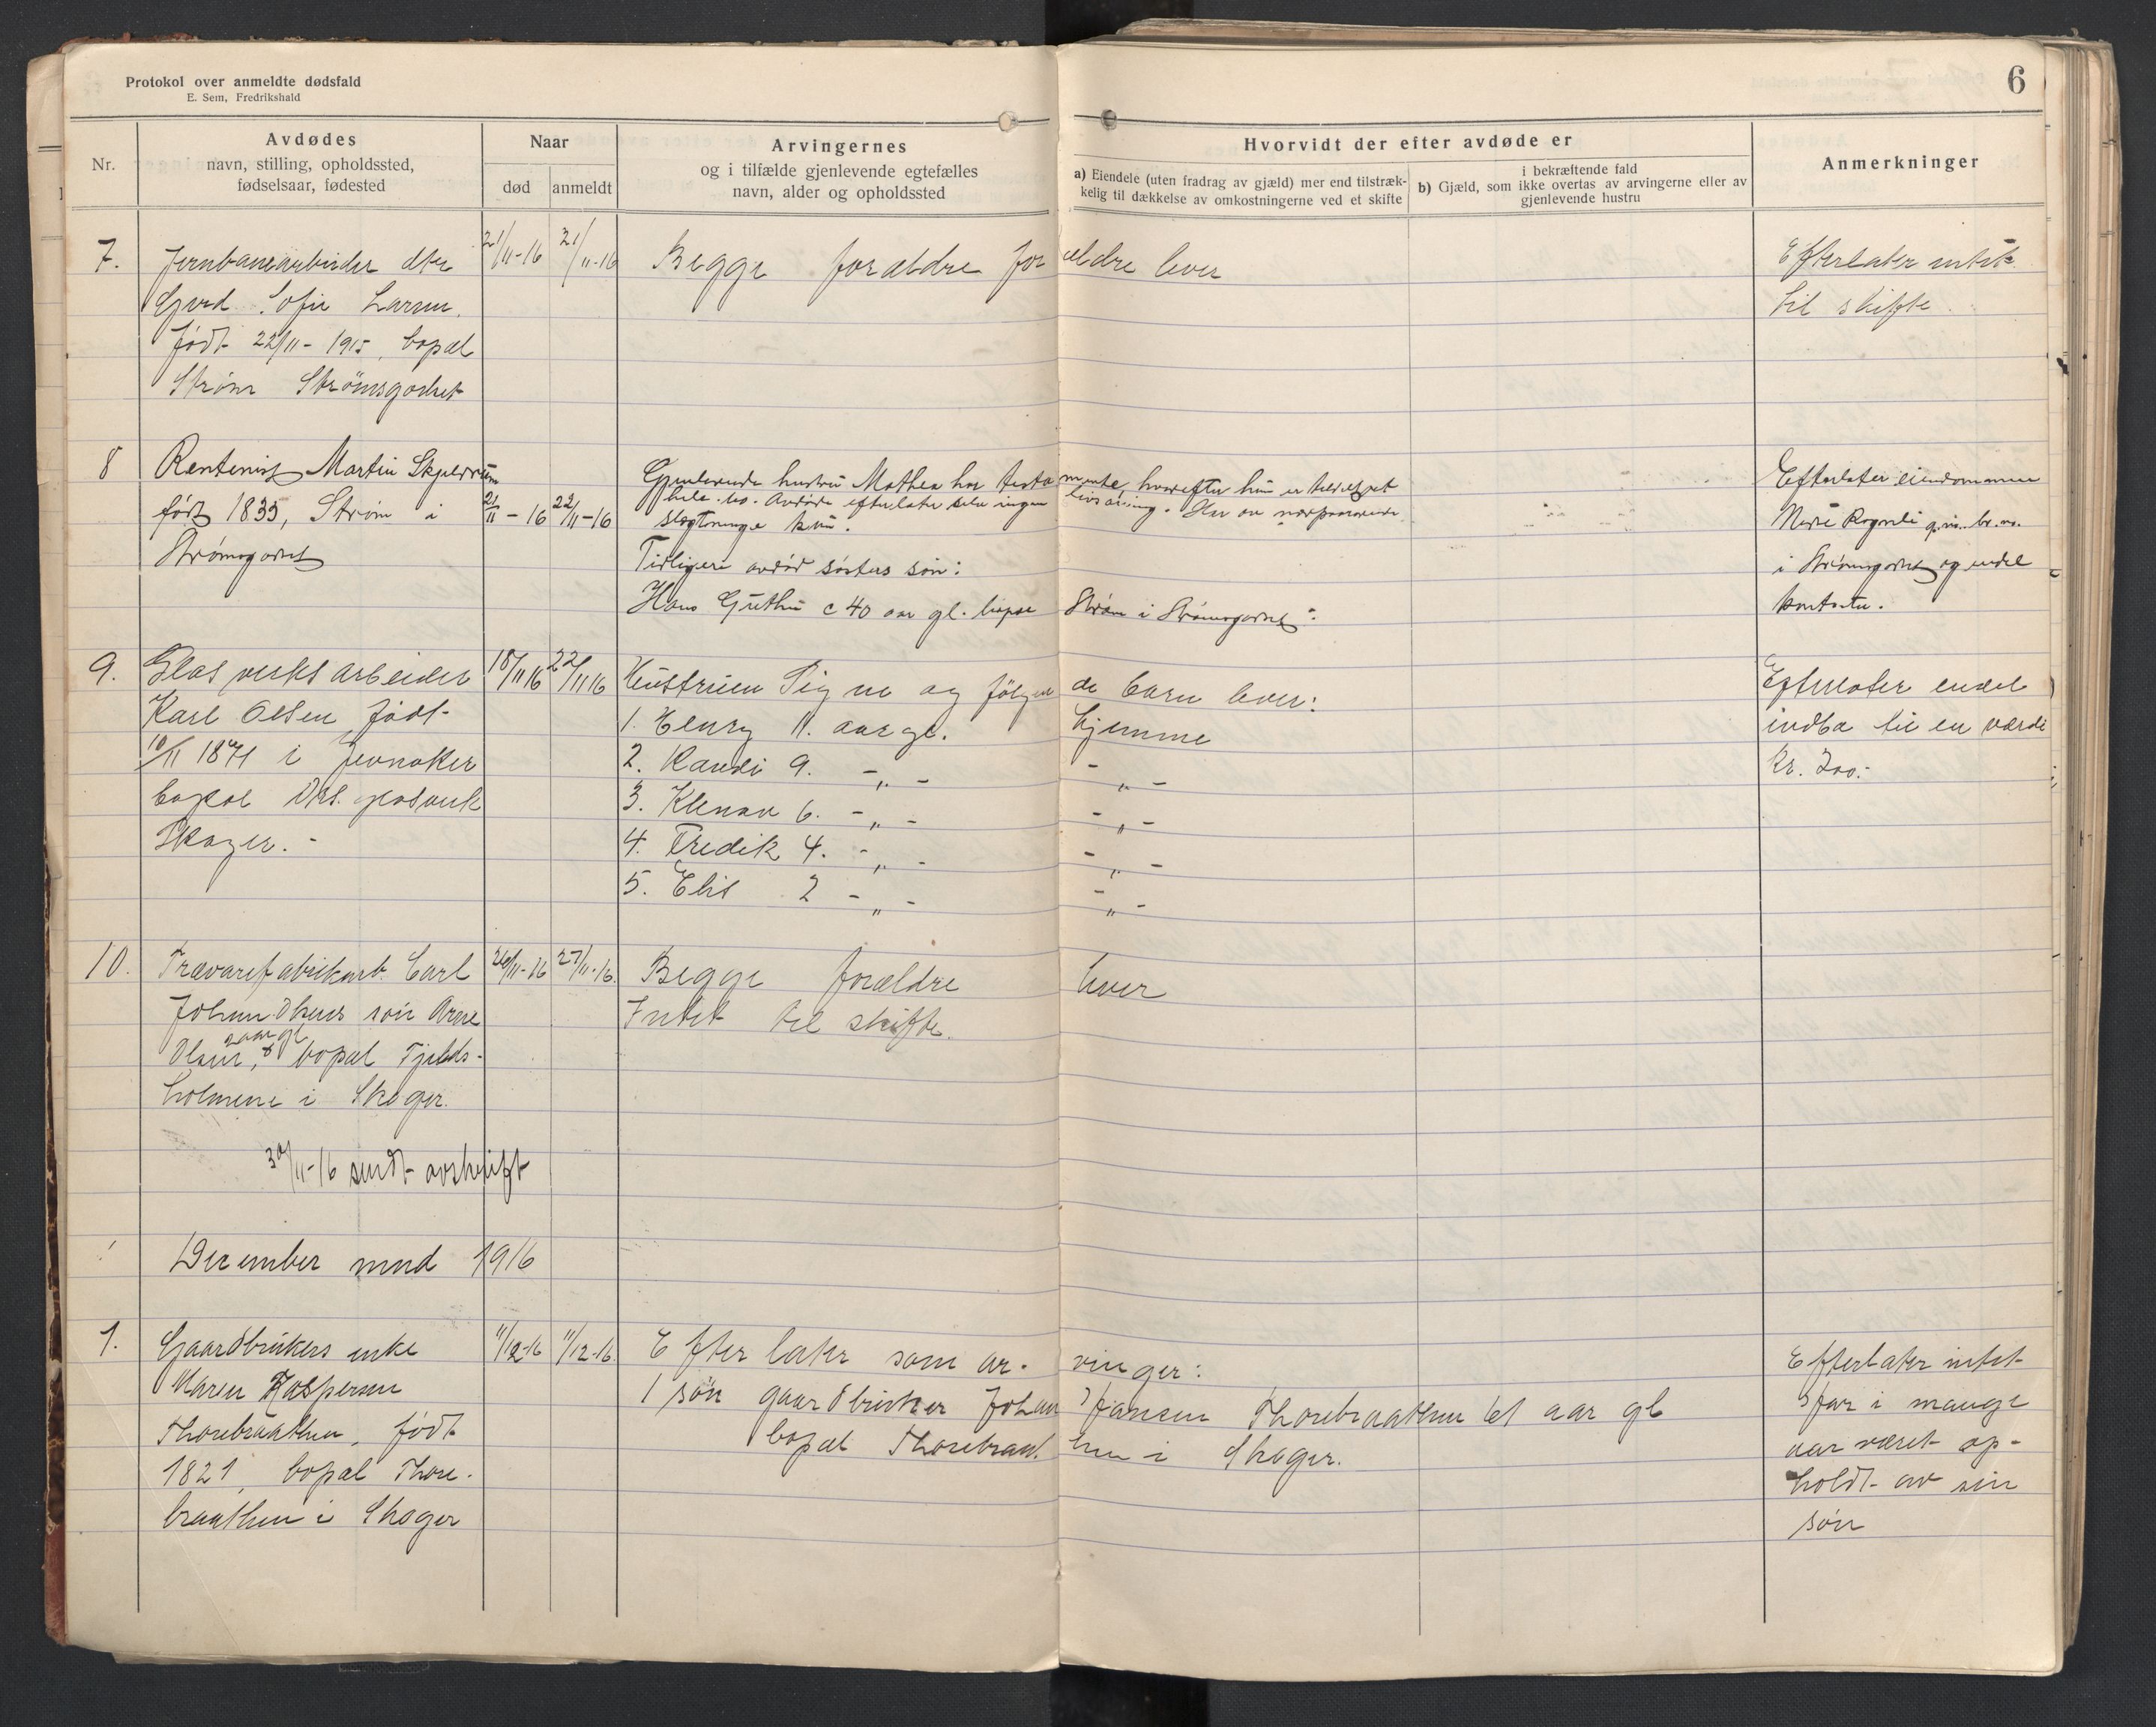 Protokol over anmeldte dødsfald
E. Sem, Fredrikshald
6
Nr.
Avdødes
navn, stilling, opholdssted,
fødselsaar, fødested
Naar
død
anmeldt
Arvingernes
og i tilfælde gjenlevende egtefælles
navn, alder og opholdssted
Hvorvidt der efter avdøde er
a) Eiendele (uten fradrag av gjæld) mer end tilstræk-
kelig til dækkelse av omkostningerne ved et skifte
i bekræftende fald
b) Gjæld, som ikke overtas av arvingerne eller av
gjenlevende hustru
Anmerkninger
7.
Jernbanearbeider dtr
Sofie Larsen,
født 22/11-1915, bopæl
Strøm Strømsgodset
21/11-16
21/11-16
Begge forældre forældre lever
Efterlater intet
til skifte.
8
Rentenist Martin Skjeldrum
født 1835, Strøm i
Strømsgodset
21/11-16
22/11-16
Gjenlevende hustru Mathea har testamente hvorefter hun er
hele bo. Avdøde efterlater sele ingen livsarving. Har av
slegtninge kun:
Tidligere avdød søsters søn:
Hans c 40 aar gl. bopæl Strøm i Strømsgodset.
Efterlater eiendommen
Nedre g.no. br.no.
i Strømsgodset og endel
kontanter.
9.
Glasverksarbeider
Karl Olsen født
10/11 1871 i Jevnaker
bopæl Drs. glasverk
Skoger. -
18/11 16
22/11 16
Hustruen Signe og følgende barn lever:
1. Henry 11. aar gl. hjemme
2. Randi 9. - „ - - „ -
3. 6. - „ - - „ -
4. Fredik 4. - „ - - „ -
5. Elis 2 - „ - - „ -
Efterlater endel
indbo til en værdi
Kr. 200.-
10.
Trævarefabrikarb. Carl
Johan Olsens søn Arne
2 aar gl
Olsen, bopæl Fjelds-
holmene i Skoger.
26/11-16
27/11-16.
Begge forældre lever
Intet til skifte.
30/11-16 sendt avskrift
December mnd 1916
1.
Gaardbrukers enke
Maren Kaspersen
Thorebraathen, født
1821, bopæl Thore-
braathen i Skoger
11/12-16
11/12-16.
Efterlater som arvinger:
1 søn gaardbruker Johan Hansen Thorebraathen 61 aar gl
bopæl Thorebraathen i Skoger.
Efterlater intet
har i mange
aar været op-
holdt av sin
søn